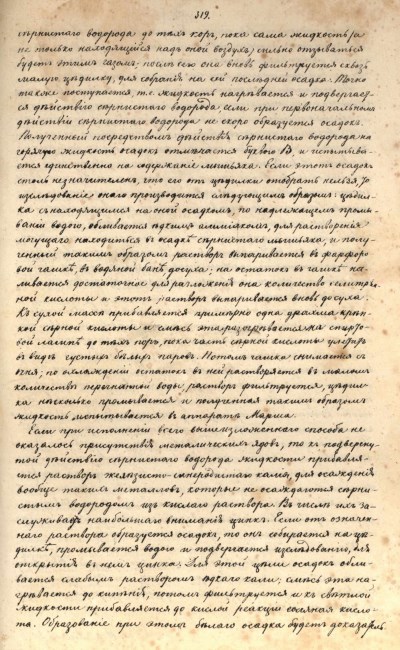 319.
сѣрнистаго водорода до тѣхъ поръ, пока сама жидкость (а
не только находящійся надъ оной воздухъ) сильно отзываться
будетъ этимъ газомъ; послѣ сего она вновь фильтруется сквозь
малую цѣдилку, для собранія на ей послѣдней осадка. Точно
также поступается, т. е. жидкость нагрѣвается и подвергает-
ся дѣйствію сѣрнистаго водорода, если при первоначальномъ
дѣйствіи сѣрнистаго водорода не скоро образуется осадокъ.
Полученный посредствомъ дѣйствія сѣрнистаго водорода на
горячую жидкость осадокъ отличается буквою В, и испытыва-
ется единственно на содержаніе мышьяка. Если этотъ осадокъ
столь незначителенъ, что его отъ цѣдилки отобрать нельзя, то
изслѣдованіе онаго производится слѣдующимъ образомъ: цѣдил-
ка съ находящимся на оной осадкомъ, по надлежащемъ промы-
ваніи водою, обливается ѣдкимъ амміакомъ, для растворенія
могущаго находиться въ осадкѣ сѣрнистаго мышьяка, и полу-
ченный такимъ образомъ растворъ выпаривается въ фарфоро-
вой чашкѣ, въ водяной банѣ досуха; на остатокъ въ чашкѣ на-
ливается достаточное для разложенія она количество селитрян-
ной кислоты и этотъ растворъ выпаривается вновь досуха.
Къ сухой массѣ прибавляется примѣрно одна драхма крѣп-
кой сѣрной кислоты и смѣсь эта разогрѣвается на спирто-
вой лампѣ до тѣхъ поръ, пока часть сѣрной кислоты улетитъ
въ видѣ густыхъ бѣлыхъ паровъ. Потомъ чашка снимается съ
огня; по охлажденіи остатокъ въ ней растворяется въ маломъ
количествѣ перегнанной воды, растворъ фильтруется, цѣдил-
ка нѣсколько промывается и полученная такимъ образомъ
жидкость испытывается въ аппаратѣ Марша.
Если при исполненіи всего вышеизложеннаго способа не
оказалось присутствія металлическихъ ядовъ, то къ подверну-
той дѣйствію сѣрнистаго водорода жидкости прибавля-
ется растворъ желѣзисто-синеродистаго калія, для осажденія
вообще такихъ металловъ, которые не осаждаются сѣрни-
стымъ водородомъ изъ кислаго раствора. Въ числѣ ихъ за-
служиваетъ наибольшаго вниманія цинкъ. Если отъ означен-
наго раствора образуется осадокъ, то онъ собирается на цѣ-
дилкѣ, промывается водою и подвергается изслѣдованію, для
открытія въ немъ цинка. Для этой цѣли осадокъ обли-
вается слабымъ растворомъ ѣдкаго кали; смѣсь эта на-
грѣвается до кипѣнія, потомъ фильтруется и къ свѣтлой
жидкости прибавляется до кислой реакціи соляная кисло-
та. Образованіе при этомъ бѣлаго осадка будетъ доказатель